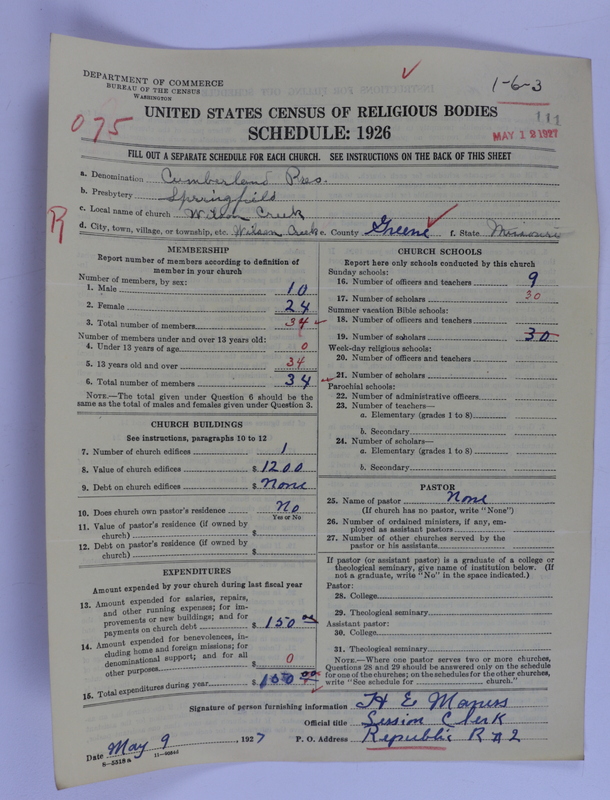 DEPARTMENT OF COMMERCE
BUREAU OF THE CENSUS
WASHINGTON
1-6-3
075
111
MAY 12 1927
UNITED STATES CENSUS OF RELIGIOUS BODIES
SCHEDULE: 1926
FILL OUT A SEPARATE SCHEDULE FOR EACH CHURCH. SEE INSTRUCTIONS ON THE BACK OF THIS SHEET
a. Denomination Cumberland Pres.
b. Presbytery Springfield
c. Local name of church Wilson Creek
R
d. City, town, village, or township, etc. Wilson Creek e. County Greene f. State Missouri
MEMBERSHIP
Report number of members according to definition of
member in your church
Number of members, by sex:
1. Male 10
2. Female 24
3. Total number of members 34
Number of members under and over 13 years old:
4. Under 13 years of age 0
5. 13 years old and over 34
6. Total number of members 34
NOTE.—The total given under Question 6 should be
same as the total of males and females given under Question 3.
CHURCH BUILDINGS
See instructions, paragraphs 10 to 12
7. Number of church edifices 1
8. Value of church edifices $ 1200
9. Debt on church edifices $ None
10. Does church own pastor's residence? No
Yes or No
11. Value of pastor's residence (if owned by
church) $
12. Debt on pastor's residence (if owned by
church) $
EXPENDITURES
Amount expended by your church during last fiscal year
13. Amount expended for salaries, repairs,
and other running expenses; for im-
provements or new buildings; and for
payments on church debt $ 150 00
14. Amount expended for benevolences, in-
cluding home and foreign missions; for
denominational support; and for all
other purposes $ 0
15. Total expenditures during year $ 150 00
CHURCH SCHOOLS
Report here only schools conducted by this church
Sunday schools:
16. Number of officers and teachers 9
17. Number of scholars 30
Summer vacation Bible schools:
18. Number of officers and teachers
19. Number of scholars 30
Week-day religious schools:
20. Number of officers and teachers
21. Number of scholars
Parochial schools:
22. Number of administrative officers
23. Number of teachers—
a. Elementary (grades 1 to 8)
b. Secondary
24. Number of scholars—
a. Elementary (grades 1 to 8)
b. Secondary
PASTOR
25. Name of pastor None
(If church has no pastor, write "None")
26. Number of ordained ministers, if any, em-
ployed as assistant pastors
27. Number of other churches served by the
pastor or his assistants
If pastor (or assistant pastor) is a graduate of a college or
theological seminary, give name of institution below. (If
not a graduate, write "No" in the space indicated.)
Pastor:
28. College
29. Theological seminary
Assistant pastor:
30. College
31. Theological seminary
NOTE.—Where one pastor serves two or more churches,
Questions 28 and 29 should be answered only on the schedule
for one of the churches; on the schedules for the other churches,
write "See schedule for church."
Signature of person furnishing information H E Maness
Official title Session Clerk
Date May 9, 1927 P. O. Address Republic R #2
8-5318a